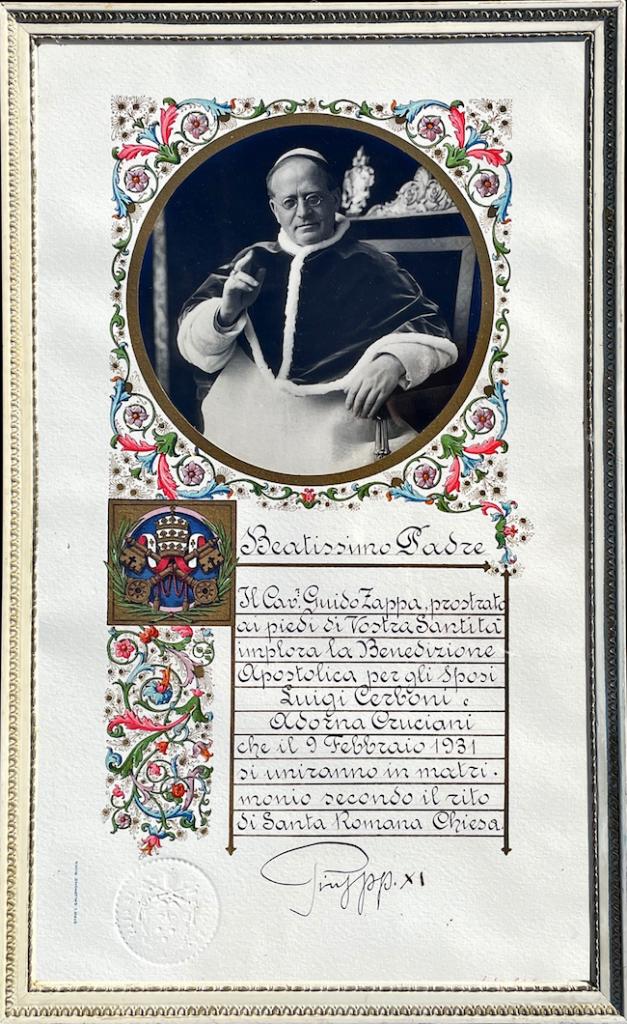 Beatissimo Padre
Il Cav.ᵉ Guido Zappa, prostrato
ai piedi di Vostra Santità
implora la Benedizione
Apostolica per gli sposi
Luigi Cerboni e
Adorna Cruciani
che il 9 Febbraio 1931
si uniranno in matri-
monio secondo il rito
di Santa Romana Chiesa.
Pius pp. XI